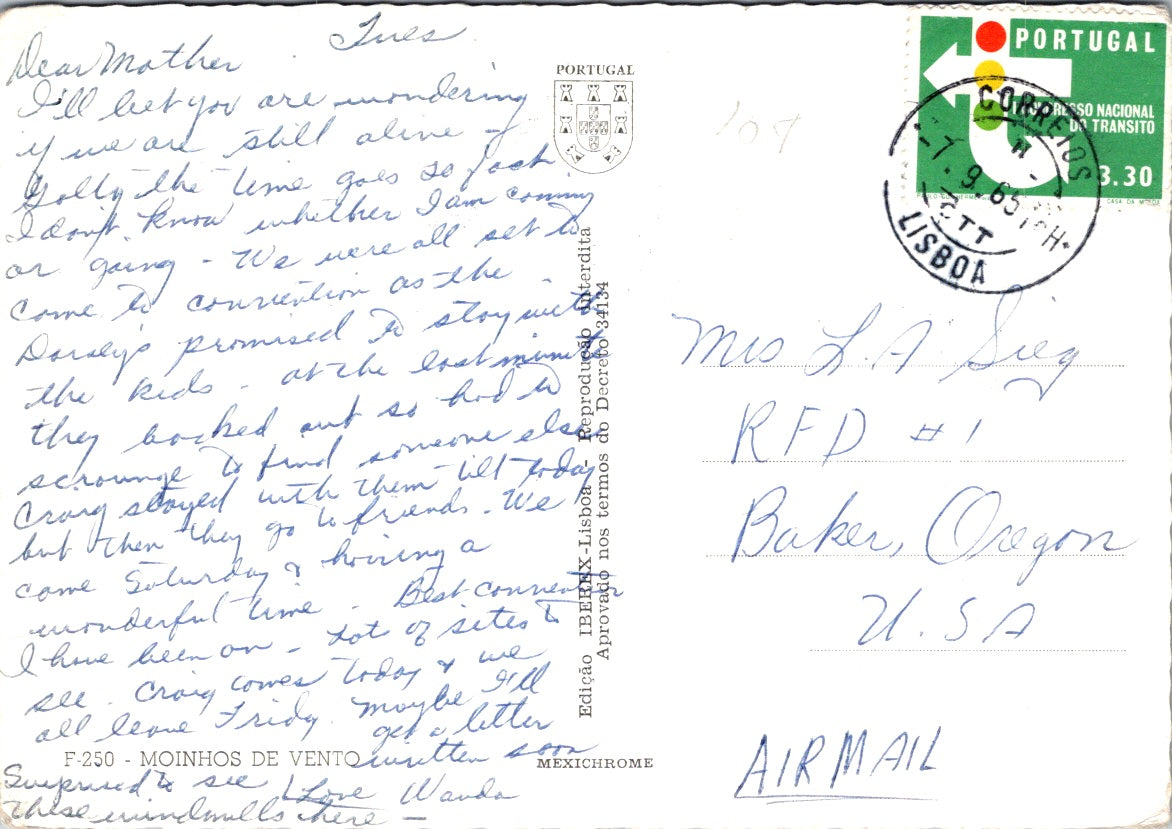 Tues
Dear Mother
I'll bet you are wondering
if we are still alive -
Golly the time goes so fast
I don't know whether I am coming
or going - We were all set to
come to convention as the
Dorsey's promised to stay with
the kids - at the last minute
they backed out so had to
scrounge to find someone else.
Craig stayed with them till today
but then they go to friends. We
came Saturday & having a
wonderful time. Best convention
I have been on - Lot of sites to
see. Craig comes today & we
all leave Friday. Maybe I'll
get a letter
written soon
Love Wanda
Surprised to see
these windmills here -
F-250 - MOINHOS DE VENTO
MEXICHROME
PORTUGAL
Edição IBEREX-Lisboa - Reprodução interdita
Aprovado nos termos do Decreto 34134
PORTUGAL
CONGRESSO NACIONAL
DO TRANSITO
3.30
CASA DA MOEDA
CORREIOS
-7.9.65
CTT
LISBOA
Mrs L. A. Sieg
RFD #1
Baker, Oregon
U.S.A
AIRMAIL